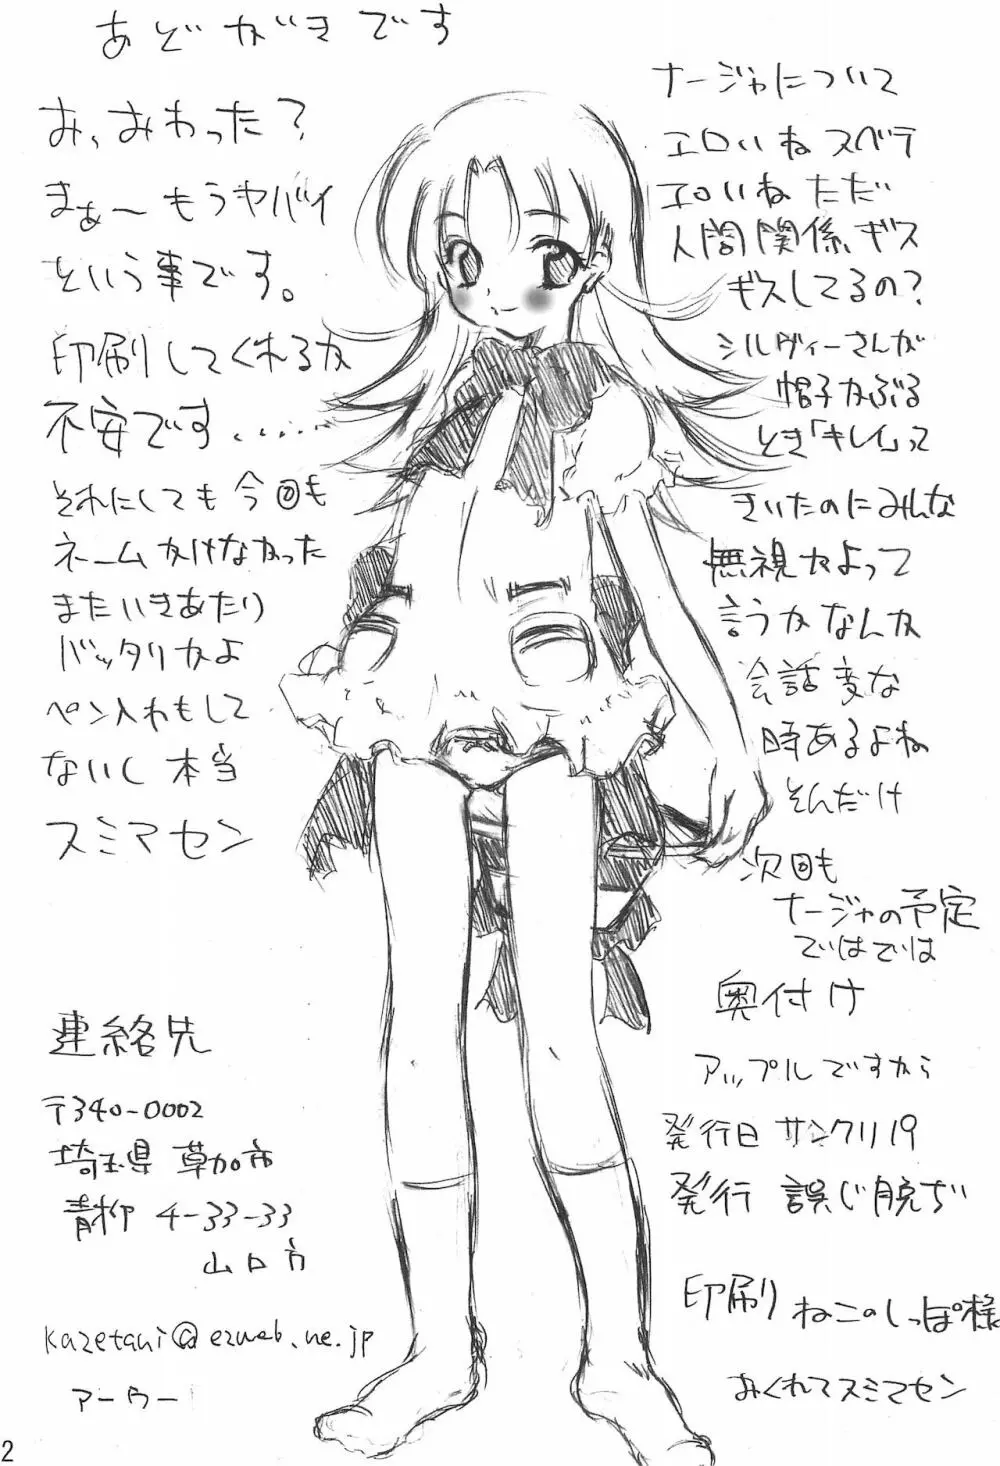 あとがきです
お、おわった?
まぁ〜もうヤバイ
という事です。
印刷してくれるか
不安です......
それにしても今回も
ネームかけなかった
またいきあたり
バッタリかよ
ペン入れもして
ないし本当
スミマセン
連絡先
〒340-0002
埼玉県 草加市
青柳 4-33-33
山口方
kazetani@ezweb.ne.jp
アーウー
ナージャについて
エロいねスベテ
エロいねただ
人間関係、ギス
ギスしてるの?
シルヴィーさんが
帽子かぶる
とき「キレイ」って
きいたのにみんな
無視かよって
言うかなんか
会話変な
時あるよね
そんだけ
次回も
ナージャの予定
ではでは
奥付け
アップルですから
発行日 サンクリ19
発行 誤じ脱ぢ
印刷 ねこのしっぽ様
おくれてスミマセン
2